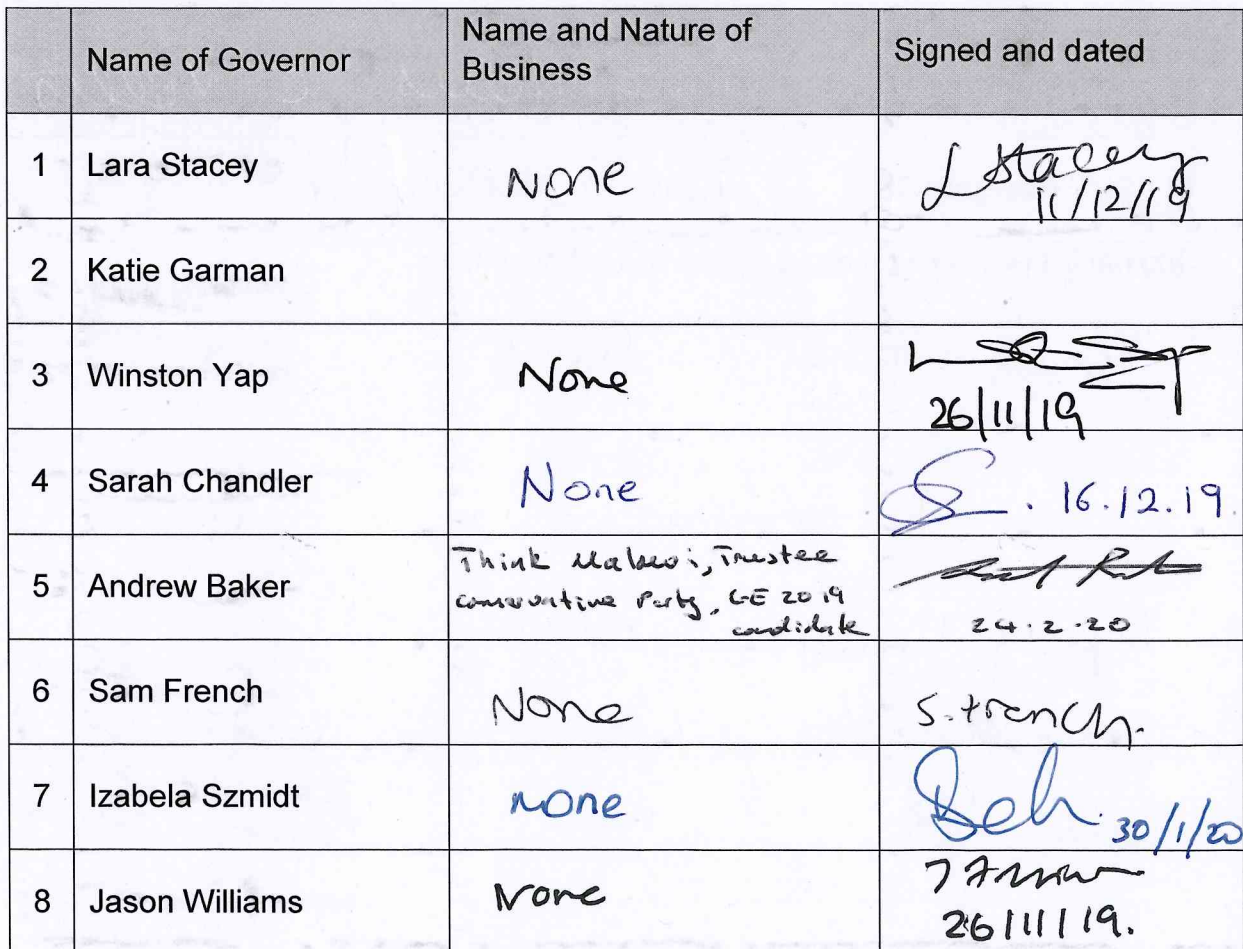 Name of Governor
Name and Nature of
Business
Signed and dated
1 Lara Stacey None L Stacey
11/12/19
2 Katie Garman
3 Winston Yap None
26/11/19
4 Sarah Chandler None 16.12.19
5 Andrew Baker Think Malawi, Trustee
Conservative Party, GE 2019
candidate
24.2.20
6 Sam French None S. French.
7 Izabela Szmidt None 30/1/20
8 Jason Williams None
26/11/19.